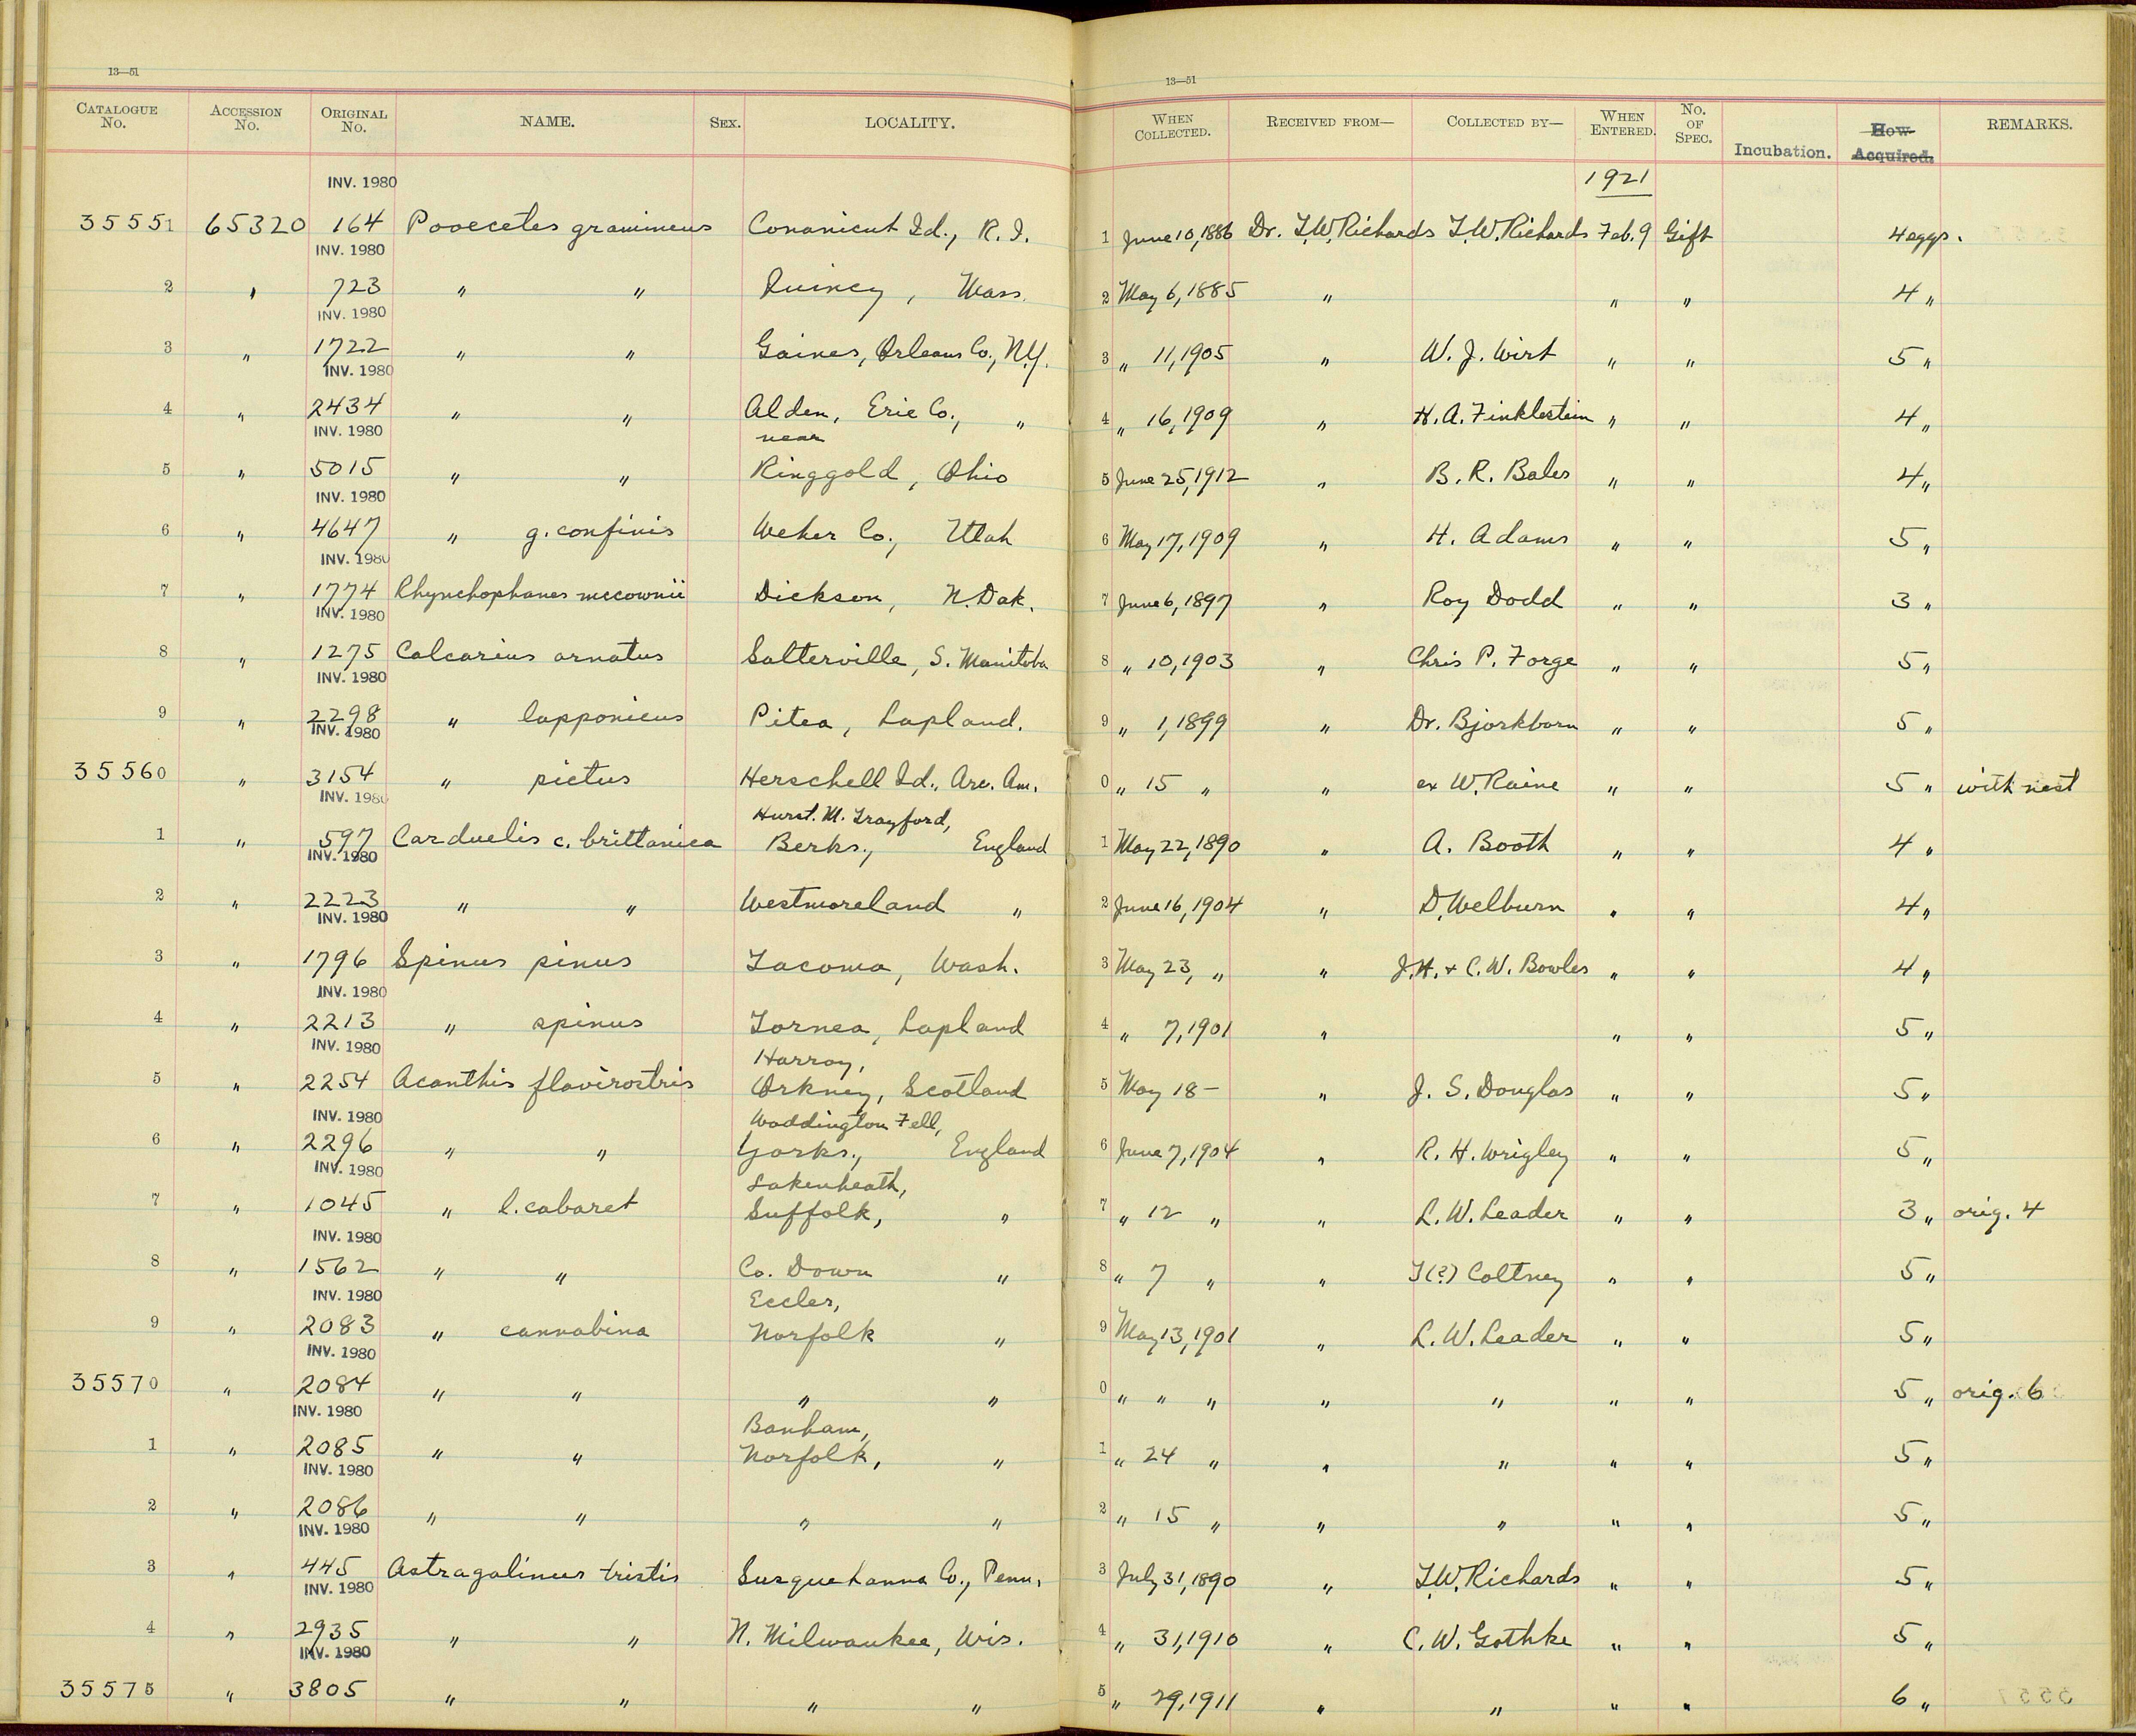 13—51
13—51
CATALOGUE No. ACCESSION No. ORIGINAL No. NAME. SEX. LOCALITY. WHEN COLLECTED. RECEIVED FROM— COLLECTED BY— WHEN ENTERED. No. OF SPEC. Incubation. How Acquired. REMARKS.
INV. 1980 1921
35551 65320 164 Pooecetes gramineus Conanicut Id., R.I. 1 June 10, 1886 Dr. T.W. Richards T.W. Richards Feb. 9 Gift 4 eggs.
INV. 1980
2 " 723 " " Quincy, Mass. 2 May 6, 1885 " " " 4 "
INV. 1980
3 " 1722 " " Gaines, Orleans Co., N.Y. 3 " 11, 1905 " W. J. Wirt " " 5 "
INV. 1980
4 " 2434 " " Alden, Erie Co., " 4 " 16, 1909 " H. A. Finklestein " " 4 "
INV. 1980 near
5 " 5015 " " Ringgold, Ohio 5 June 25, 1912 " B. R. Bales " " 4 "
INV. 1980
6 " 4647 " g. confinis Weber Co., Utah 6 May 17, 1909 " H. Adams " " 5 "
INV. 1980
7 " 1774 Rhynchophanes mccownii Dickson, N. Dak. 7 June 6, 1897 " Roy Dodd " " 3 "
INV. 1980
8 " 1275 Calcarius ornatus Salterville, S. Manitoba 8 " 10, 1903 " Chris P. Forge " " 5 "
INV. 1980
9 " 2298 " lapponicus Pitea, Lapland. 9 " 1, 1899 " Dr. Bjorkborn " " 5 "
INV. 1980
35560 " 3154 " pictus Herschell Id., Arc. Am. 0 " 15 " " ex W. Raine " " 5 " with nest
INV. 1980 Hurst. M. Trayford,
1 " 597 Carduelis c. brittanica Berks., England 1 May 22, 1890 " A. Booth " " 4 "
INV. 1980
2 " 2223 " " Westmoreland " 2 June 16, 1904 " D. Welburn " " 4 "
INV. 1980
3 " 1796 Spinus pinus Tacoma, Wash. 3 May 23, " " J.H. & C.W. Bowles " " 4 "
INV. 1980
4 " 2213 " spinus Tornea, Lapland 4 " 7, 1901 " " " 5 "
INV. 1980 Harray,
5 " 2254 Acanthis flavirostris Orkney, Scotland 5 May 18– " J. S. Douglas " " 5 "
INV. 1980 Waddington Fell,
6 " 2296 " " Yorks., England 6 June 7, 1904 " R. H. Wrigley " " 5 "
INV. 1980 Lakenheath,
7 " 1045 " l. cabaret Suffolk, " 7 " 12 " " L. W. Leader " " 3 " orig. 4
INV. 1980
8 " 1562 " " Co. Down " 8 " 7 " " T(?) Coltney " " 5 "
INV. 1980 Eccler,
9 " 2083 " cannabina Norfolk " 9 May 13, 1901 " L. W. Leader " " 5 "
INV. 1980
35570 " 2084 " " " " 0 " " " " " " " 5 " orig. 6
INV. 1980 Banham,
1 " 2085 " " Norfolk, " 1 " 24 " " " " " 5 "
INV. 1980
2 " 2086 " " " " 2 " 15 " " " " " 5 "
INV. 1980
3 " 445 Astragalinus tristis Susquehanna Co., Penn. 3 July 31, 1890 " T.W. Richards " " 5 "
INV. 1980
4 " 2935 " " N. Milwaukee, Wis. 4 " 31, 1910 " C. W. Gothke " " 5 "
INV. 1980
35575 " 3805 " " " " 5 " 29, 1911 " " " " 6 "